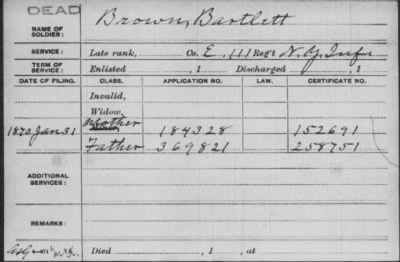 DEAD
NAME OF SOLDIER: Brown, Bartlett
SERVICE: Late rank, Co. E, 111 Reg't N.Y. Inf.
TERM OF SERVICE: Enlisted , 1 Discharged , 1
DATE OF FILING. CLASS. APPLICATION NO. LAW. CERTIFICATE NO.
Invalid,
Widow,
1870 Jan 31 Mother 184328 152691
Father 369821 258751
ADDITIONAL SERVICES:
REMARKS:
Died , 1 , at